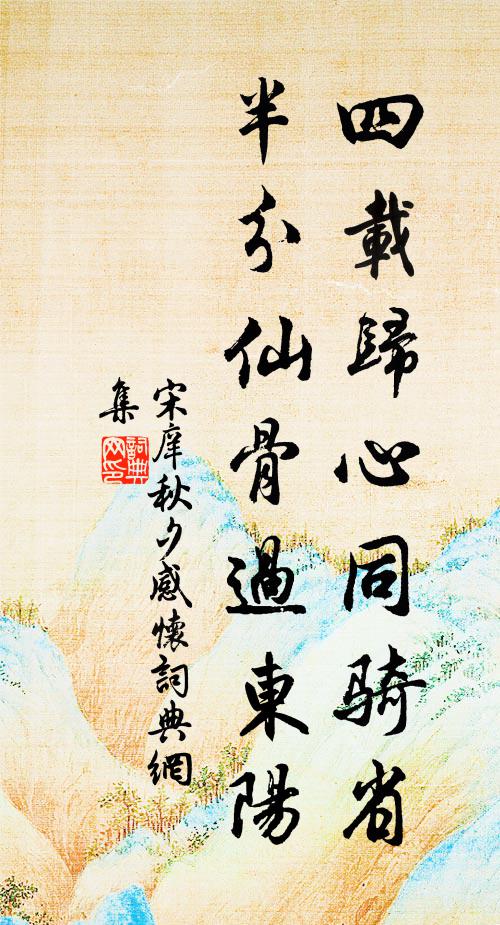 四載歸心同騎省
半分仙骨過東陽
宋庠秋夕感懷詞典網
集
詞典網印